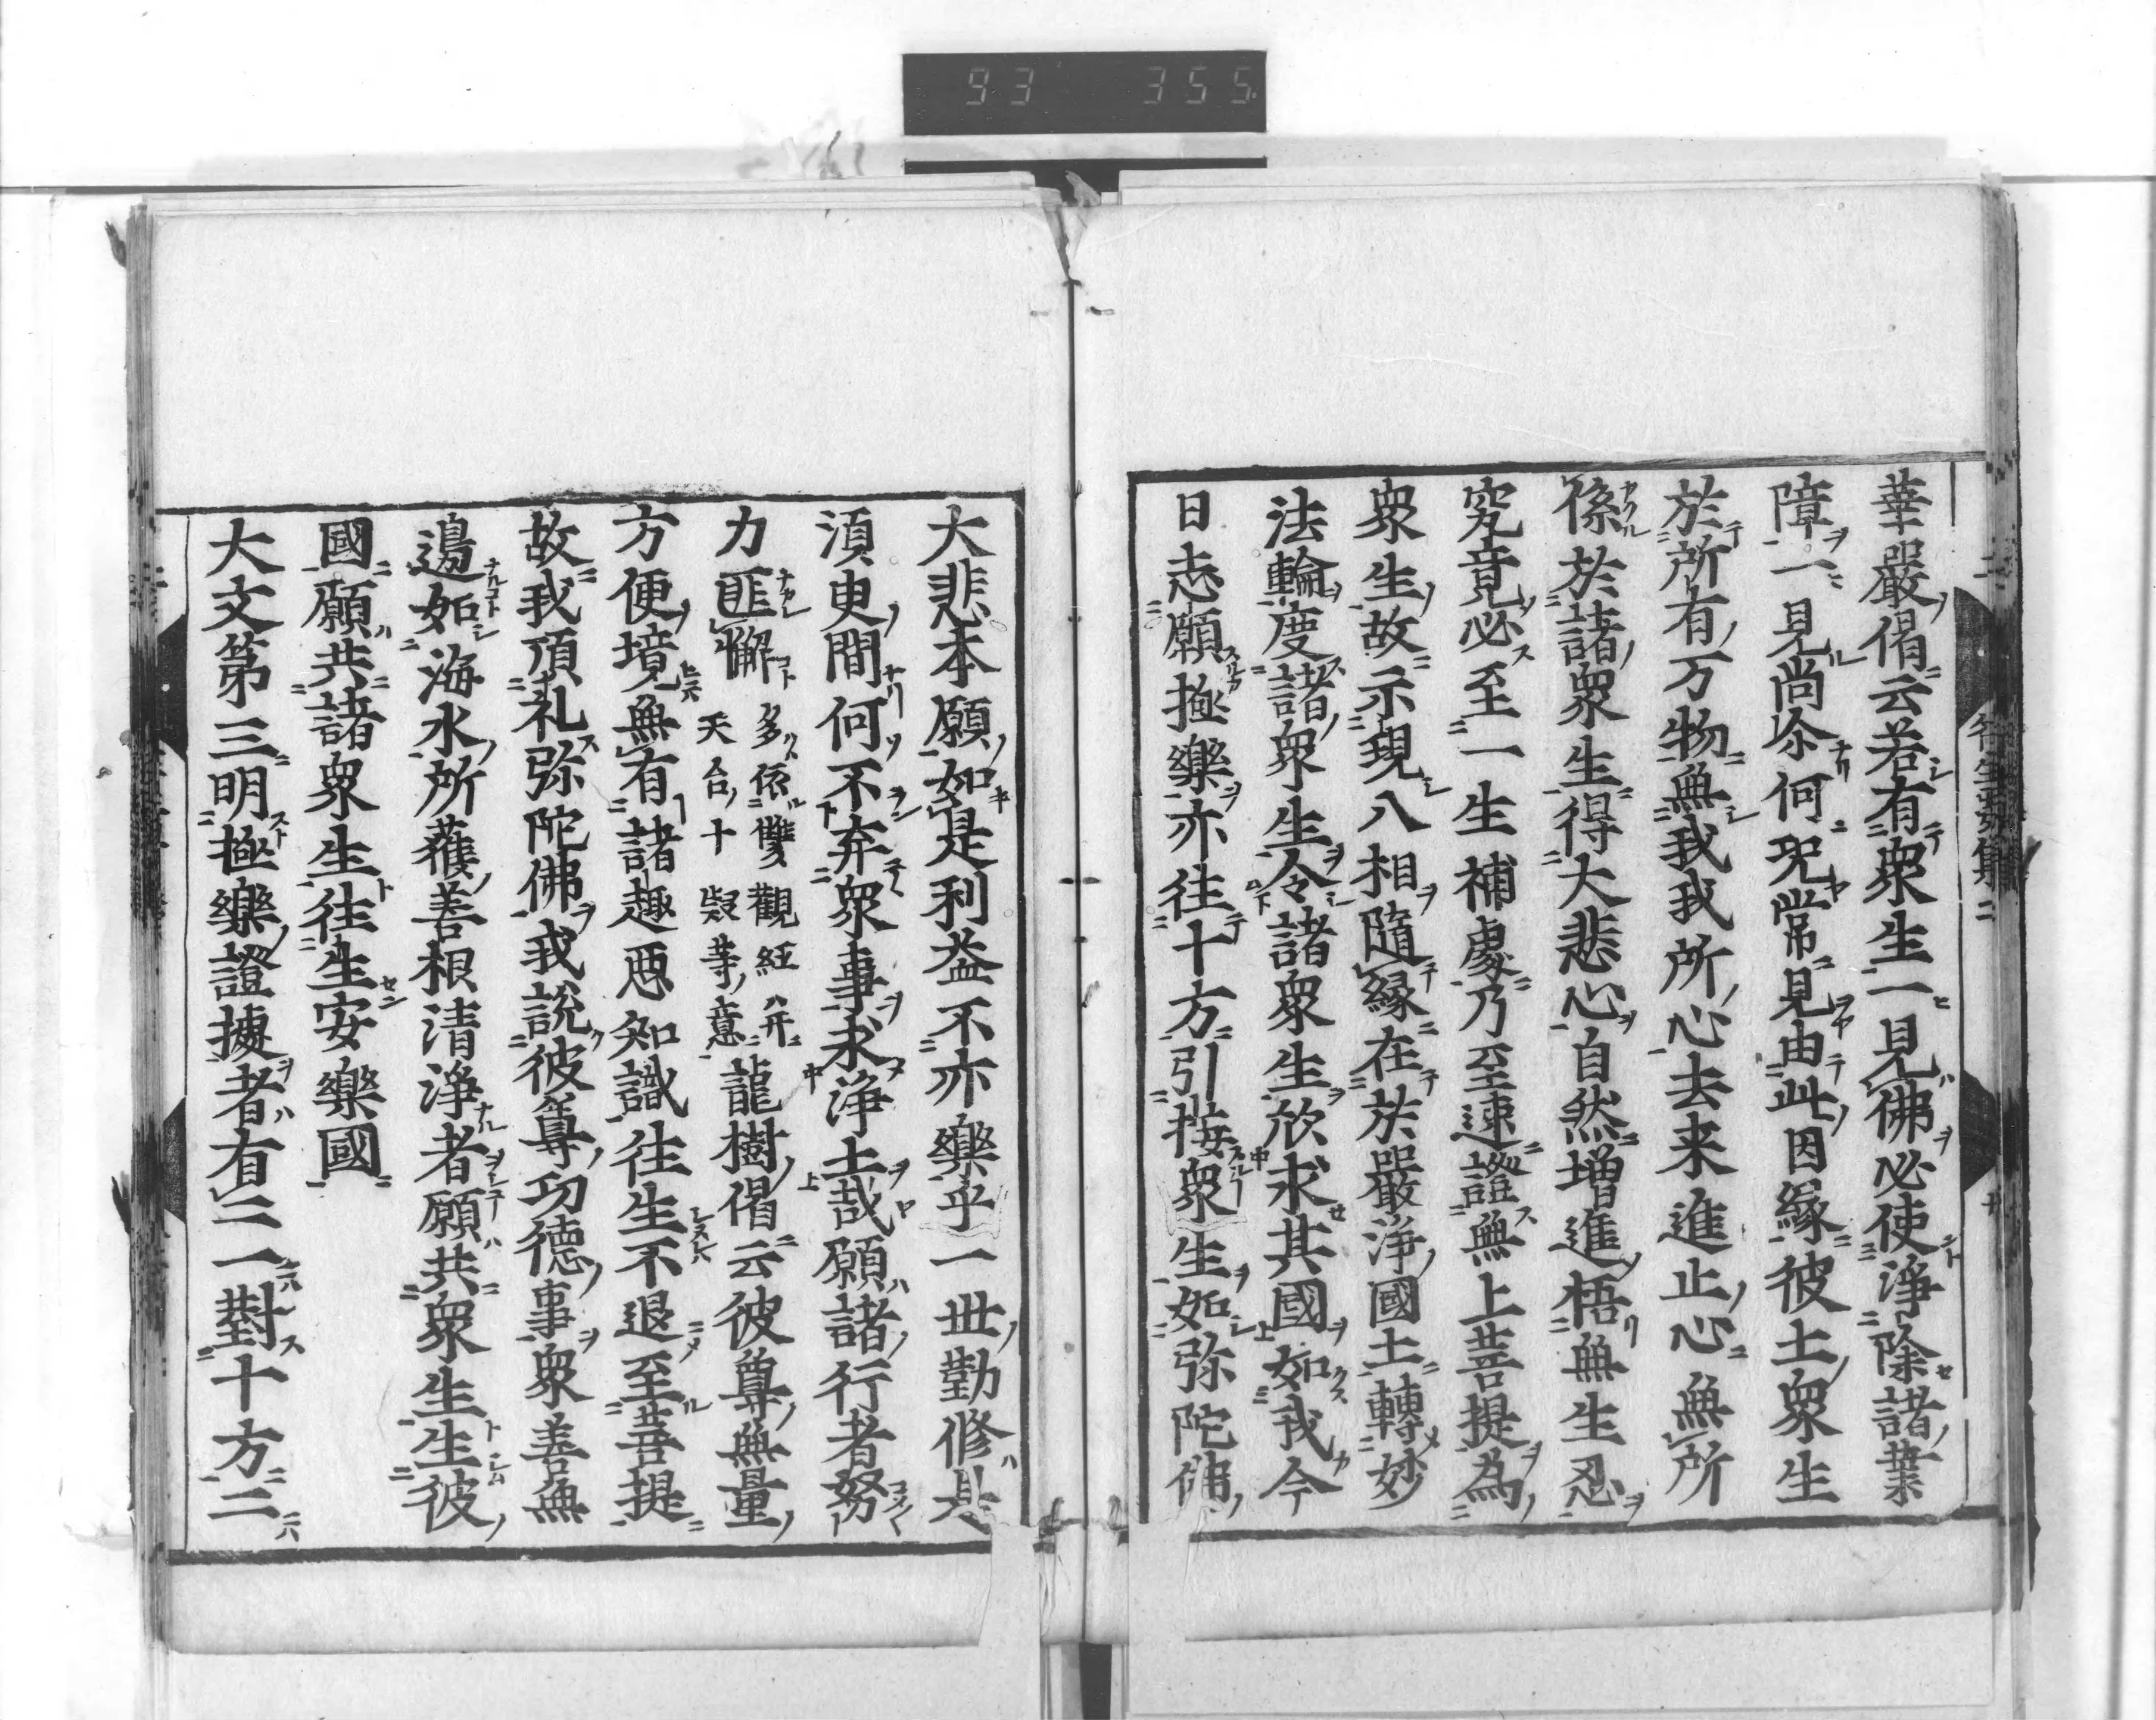 93 355
華嚴偈云若有衆生一見佛必使淨除諸業
障一見尚尒何况常見由此因緣彼土衆生
於所有万物無我我所心去来進止心無所
係於諸衆生得大悲心自然増進悟無生忍
究竟必至一生補處乃至速證無上菩提為
衆生故示現八相隨緣在於嚴淨國土轉妙
法輪度諸衆生令諸衆生欣求其國如我今
日志願極樂亦往十方引接衆生如弥陀佛
大悲本願如是利益不亦樂乎一世勤修是
須臾間何不弃衆事求淨土哉願諸行者努
力匪懈多依雙觀経并天台十疑等意龍樹偈云彼尊無量
方便境無有諸趣悪知識往生不退至菩提
故我頂礼弥陀佛我説彼尊功德事衆善無
邊如海水所獲善根清淨者願共衆生生彼
國願共諸衆生往生安樂國
大文第三明極樂證據者有二一對十方二